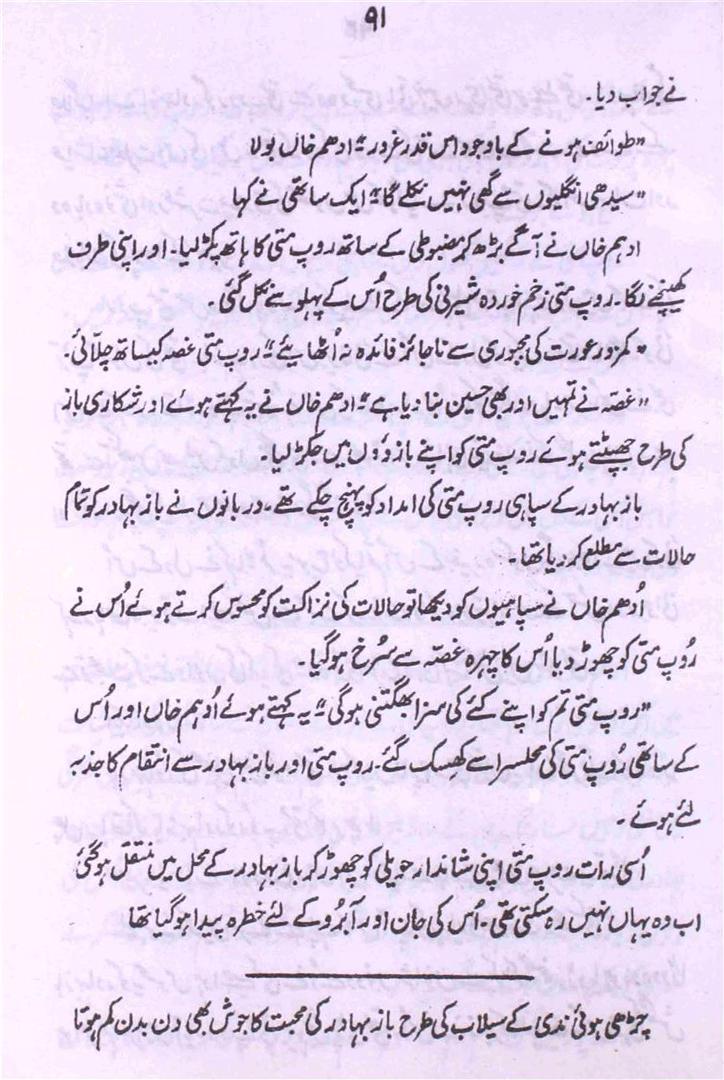 ۹۱
نے جواب دیا۔
”طوائف ہونے کے باوجود اس قدر غرور“ ادھم خاں بولا
”سیدھی انگلیوں سے گھی نہیں نکلے گا“ ایک ساتھی نے کہا
ادہم خاں نے آگے بڑھ کر مضبوطی کے ساتھ روپ متی کا ہاتھ پکڑ لیا۔ اور اپنی طرف
کھینچنے لگا۔ روپ متی زخم خوردہ شیرنی کی طرح اُس کے پہلو سے نکل گئی۔
”کمزور عورت کی مجبوری سے ناجائز فائدہ نہ اُٹھایئے“ روپ متی غصہ کیساتھ چلّائی۔
”غصہ نے تمہیں اور بھی حسین بنا دیا ہے“ ادھم خاں نے یہ کہتے ہوئے اور شکاری باز
کی طرح جھپٹتے ہوئے روپ متی کو اپنے بازوؤں میں جکڑ لیا۔
باز بہادر کے سپاہی روپ متی کی امداد کو پہنچ چکے تھے۔ دربانوں نے باز بہادر کو تمام
حالات سے مطلع کر دیا تھا۔
اُدھم خاں نے سپاہیوں کو دیکھا تو حالات کی نزاکت کو محسوس کرتے ہوئے اُس نے
رُوپ متی کو چھوڑ دیا اُس کا چہرہ غصّہ سے سُرخ ہو گیا۔
”روپ متی تم کو اپنے کئے کی سزا بھگتنی ہوگی“ یہ کہتے ہوئے اُدہم خاں اور اُس
کے ساتھی رُوپ متی کی محلسرا سے کھسک گئے۔ روپ متی اور باز بہادر سے انتقام کا جذبہ
لئے ہوئے۔
اُسی رات روپ متی اپنی شاندار حویلی کو چھوڑ کر باز بہادر کے محل میں منتقل ہو گئی
اب وہ یہاں نہیں رہ سکتی تھی۔ اُس کی جان اور آبرُو کے لئے خطرہ پیدا ہو گیا تھا
چڑھی ہوئی ندی کے سیلاب کی طرح باز بہادر کی محبت کا جوش بھی دن بدن کم ہوتا